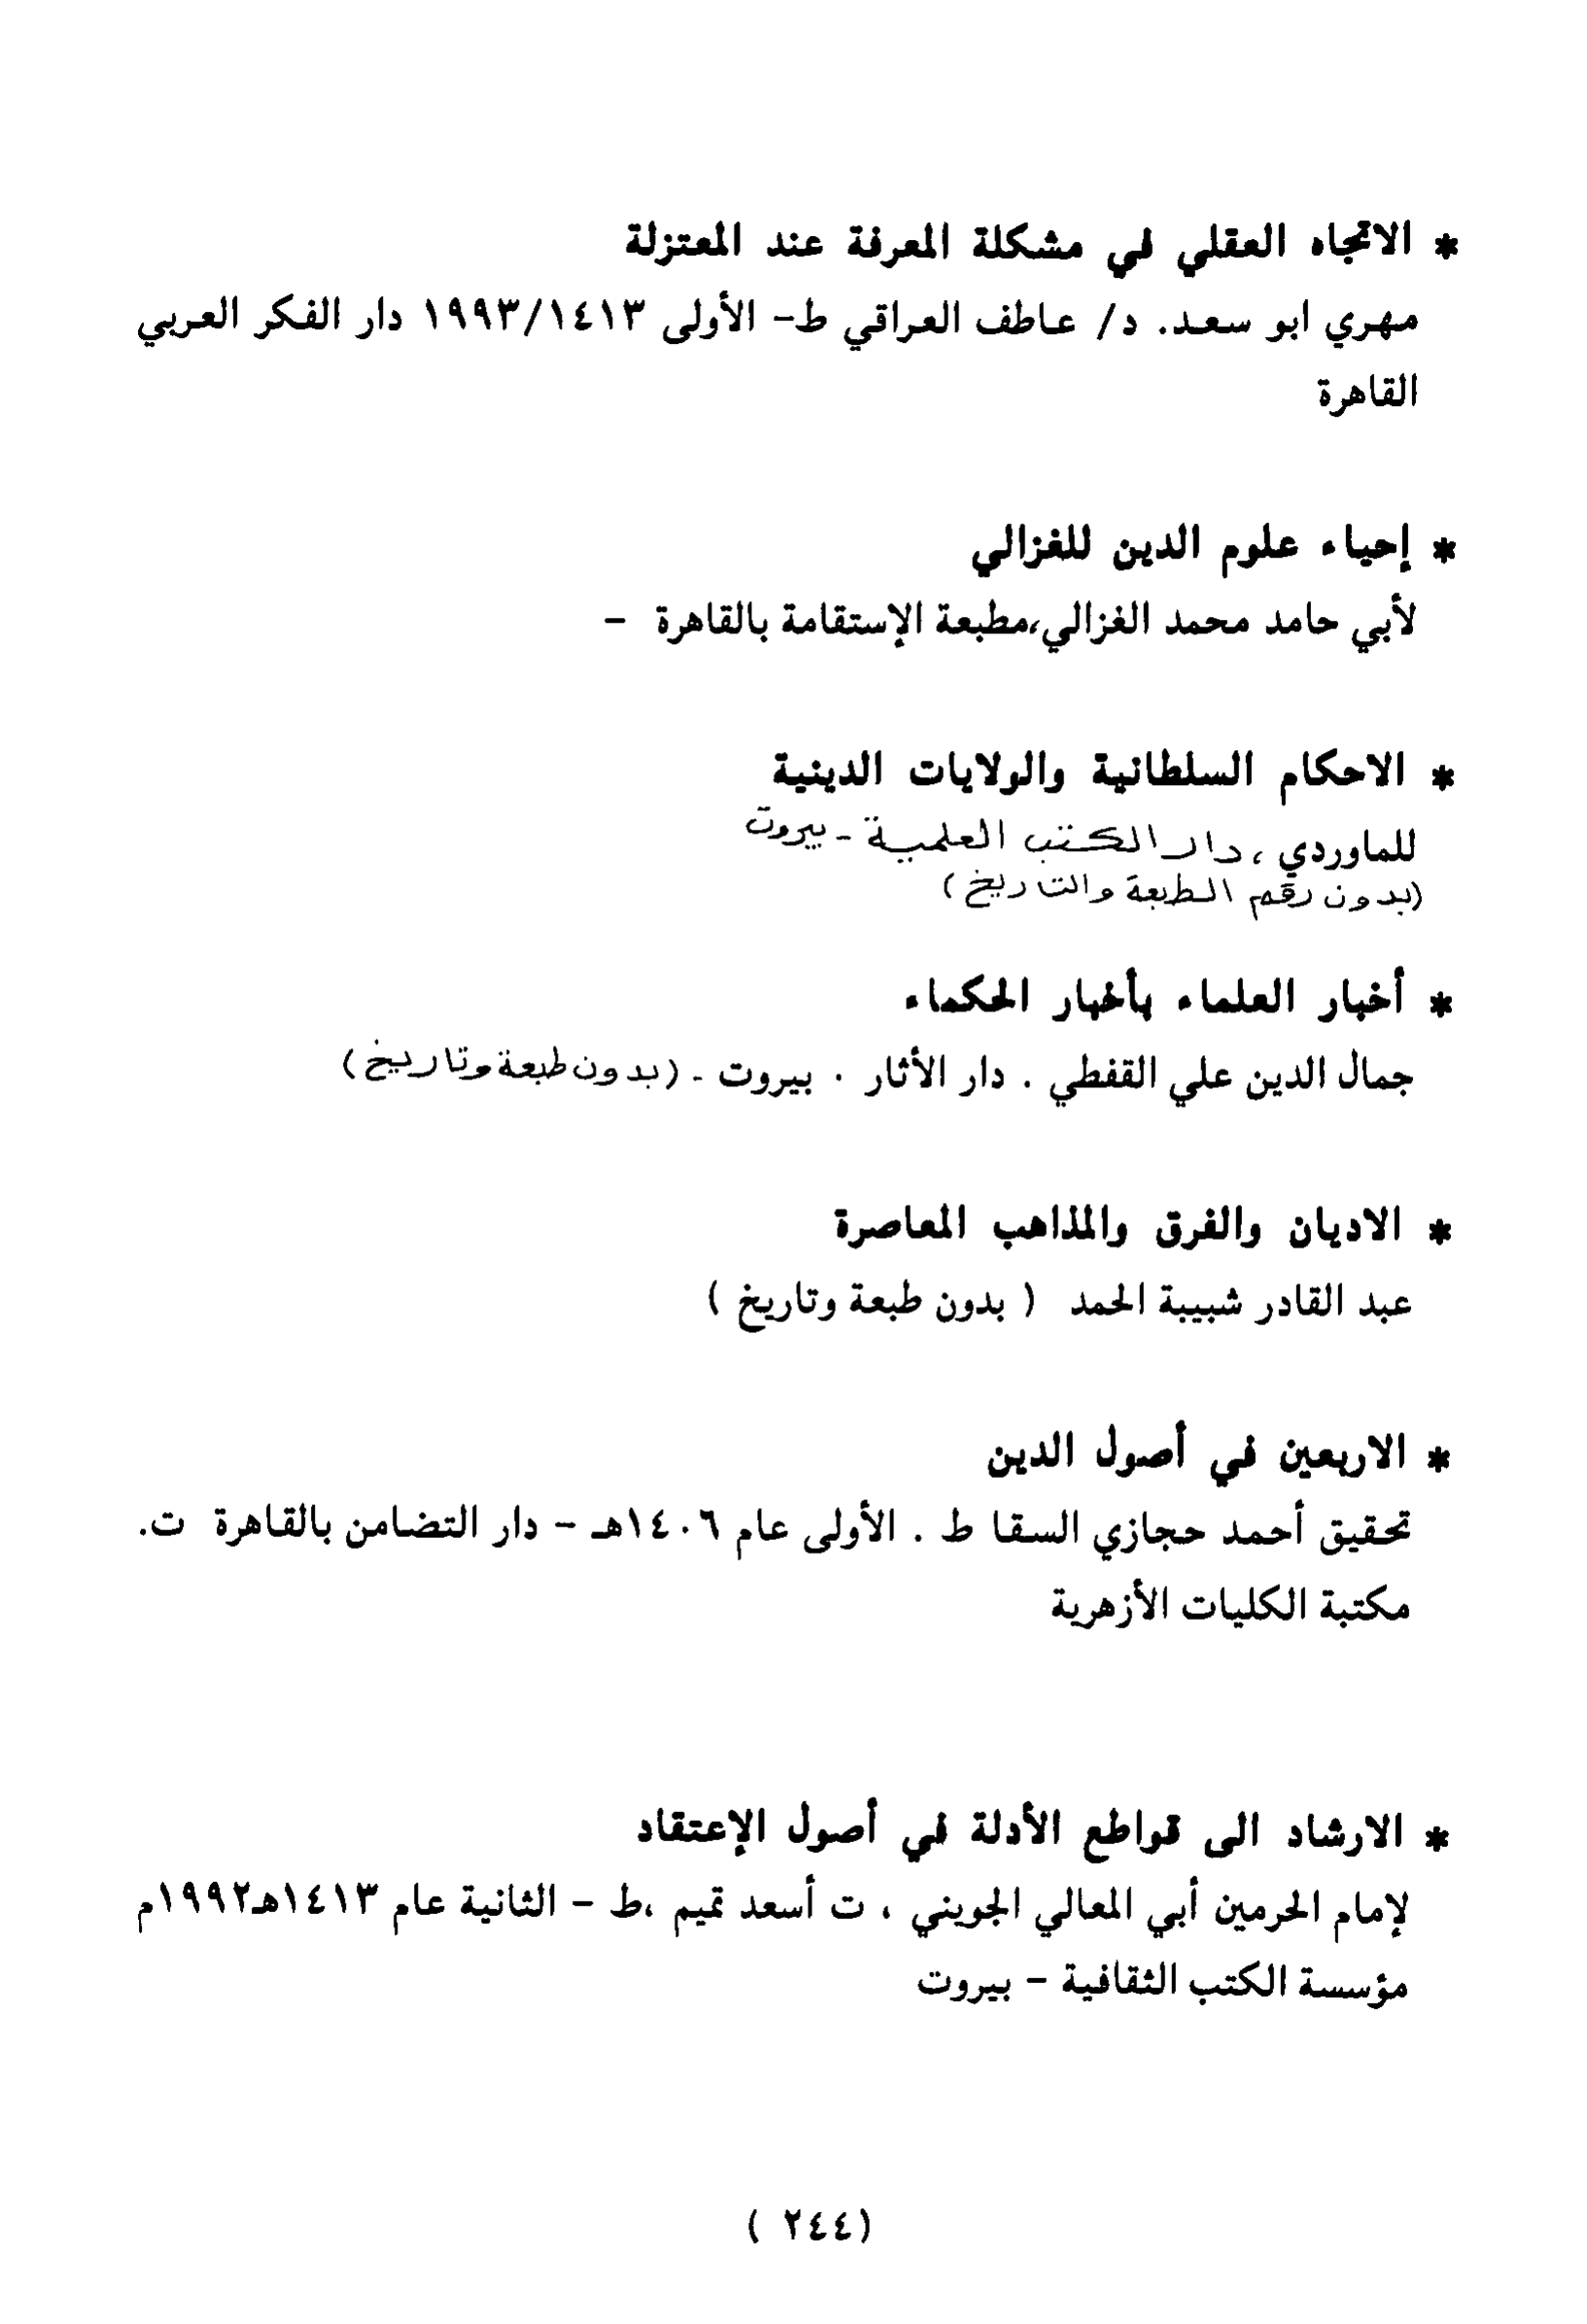 * الاتجاه العقلي في مشكلة المعرفة عند المعتزلة
مهري ابو سعد. د/ عاطف العراقي ط- الأولى ١٩٩٣/١٤١٣ دار الفكر العربي
القاهرة
* إحياء علوم الدين للغزالي
لأبي حامد محمد الغزالي،مطبعة الإستقامة بالقاهرة -
* الاحكام السلطانية والولايات الدينية
للماوردي ، دار الكتب العلمية - بيروت
(بدون رقم الطبعة والتاريخ)
* أخبار العلماء بأخبار الحكماء
جمال الدين علي القفطي . دار الأثار . بيروت - (بدون طبعة وتاريخ)
* الاديان والفرق والمذاهب المعاصرة
عبد القادر شبيبة الحمد ( بدون طبعة وتاريخ )
* الاربعين في أصول الدين
تحقيق أحمد حجازي السقا ط . الأولى عام ١٤٠٦هـ - دار التضامن بالقاهرة ت.
مكتبة الكليات الأزهرية
* الارشاد الى قواطع الأدلة في أصول الإعتقاد
لإمام الحرمين أبي المعالي الجويني ، ت أسعد تميم ،ط - الثانية عام ١٤١٣هـ١٩٩٢م
مؤسسة الكتب الثقافية - بيروت
(٢٤٤ )